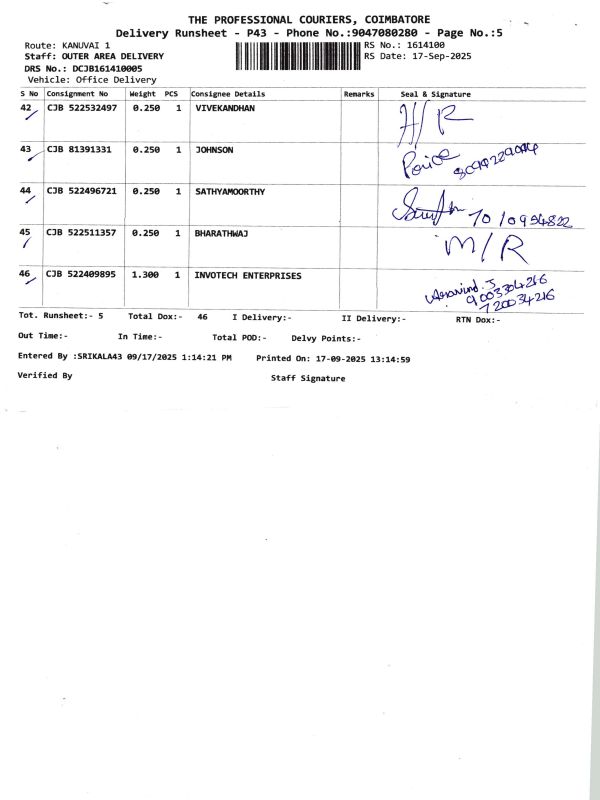 THE PROFESSIONAL COURIERS, COIMBATORE
Delivery Runsheet - P43 - Phone No.:9047080280 - Page No.:5
Route: KANUVAI 1 RS No.: 1614100
Staff: OUTER AREA DELIVERY RS Date: 17-Sep-2025
DRS No.: DCJB161410005
Vehicle: Office Delivery
S No Consignment No Weight PCS Consignee Details Remarks Seal & Signature
42 CJB 522532497 0.250 1 VIVEKANDHAN H/R
43 CJB 81391331 0.250 1 JOHNSON
44 CJB 522496721 0.250 1 SATHYAMOORTHY
45 CJB 522511357 0.250 1 BHARATHWAJ M/R
46 CJB 522409895 1.300 1 INVOTECH ENTERPRISES
9003304216
Tot. Runsheet:- 5 Total Dox:- 46 I Delivery:- II Delivery:- RTN Dox:-
Out Time:- In Time:- Total POD:- Delvy Points:-
Entered By :SRIKALA43 09/17/2025 1:14:21 PM Printed On: 17-09-2025 13:14:59
Verified By Staff Signature